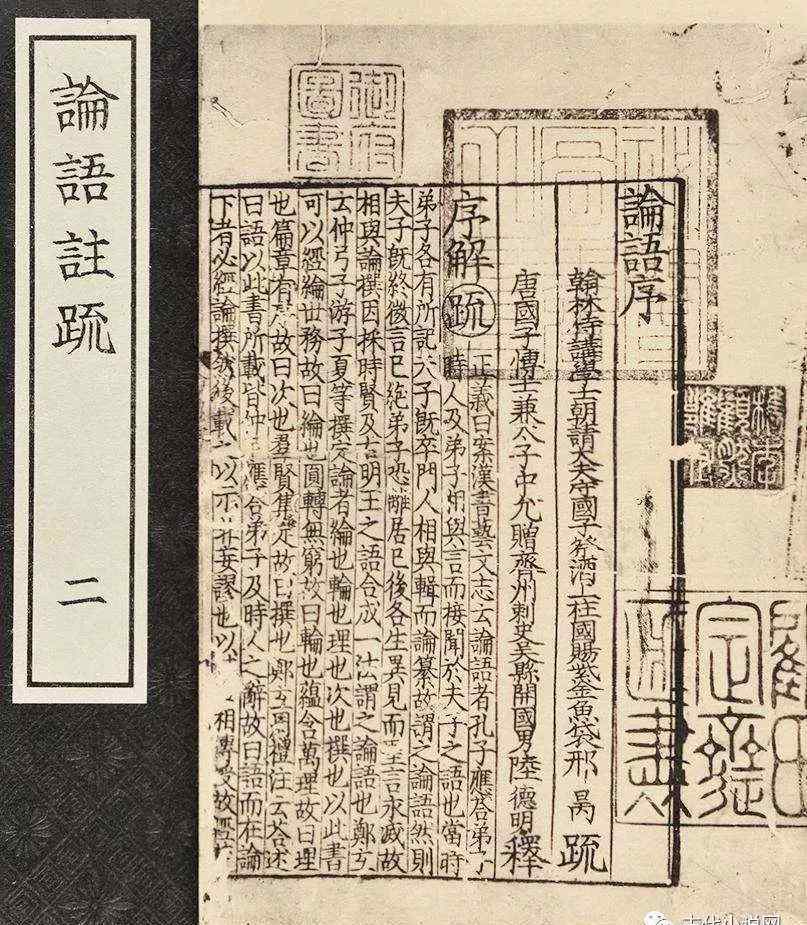 論語註疏 二
論語序
翰林侍講學士朝請大夫守國子祭酒上柱國賜紫金魚袋邢昺疏
唐國子博士兼太子中允贈齊州刺史吳縣開國男陸德明釋
序解 疏 正義曰案漢書藝文志云論語者孔子應荅弟子
時人及弟子相與言而接聞於夫子之語也當時
弟子各有所記夫子既卒門人相與輯而論纂故謂之論語然則
夫子既終微言已絕弟子恐離居已後各生異見而聖言永滅故
相與論撰因採時賢及古明王之語合成一法謂之論語也鄭玄
云仲弓子游子夏等撰定論者綸也輪也理也次也撰也以此書
可以經綸世務故曰綸也圓轉無窮故曰輪也蘊含萬理故曰理
也篇章有序故曰次也羣賢集定故曰撰也鄭玄周禮注云荅述
曰語以此書所載皆仲尼應荅弟子及時人之辭故曰語而在論
下者必經論撰然後載之以示非妄謬也以相傳受故經
御府圖書